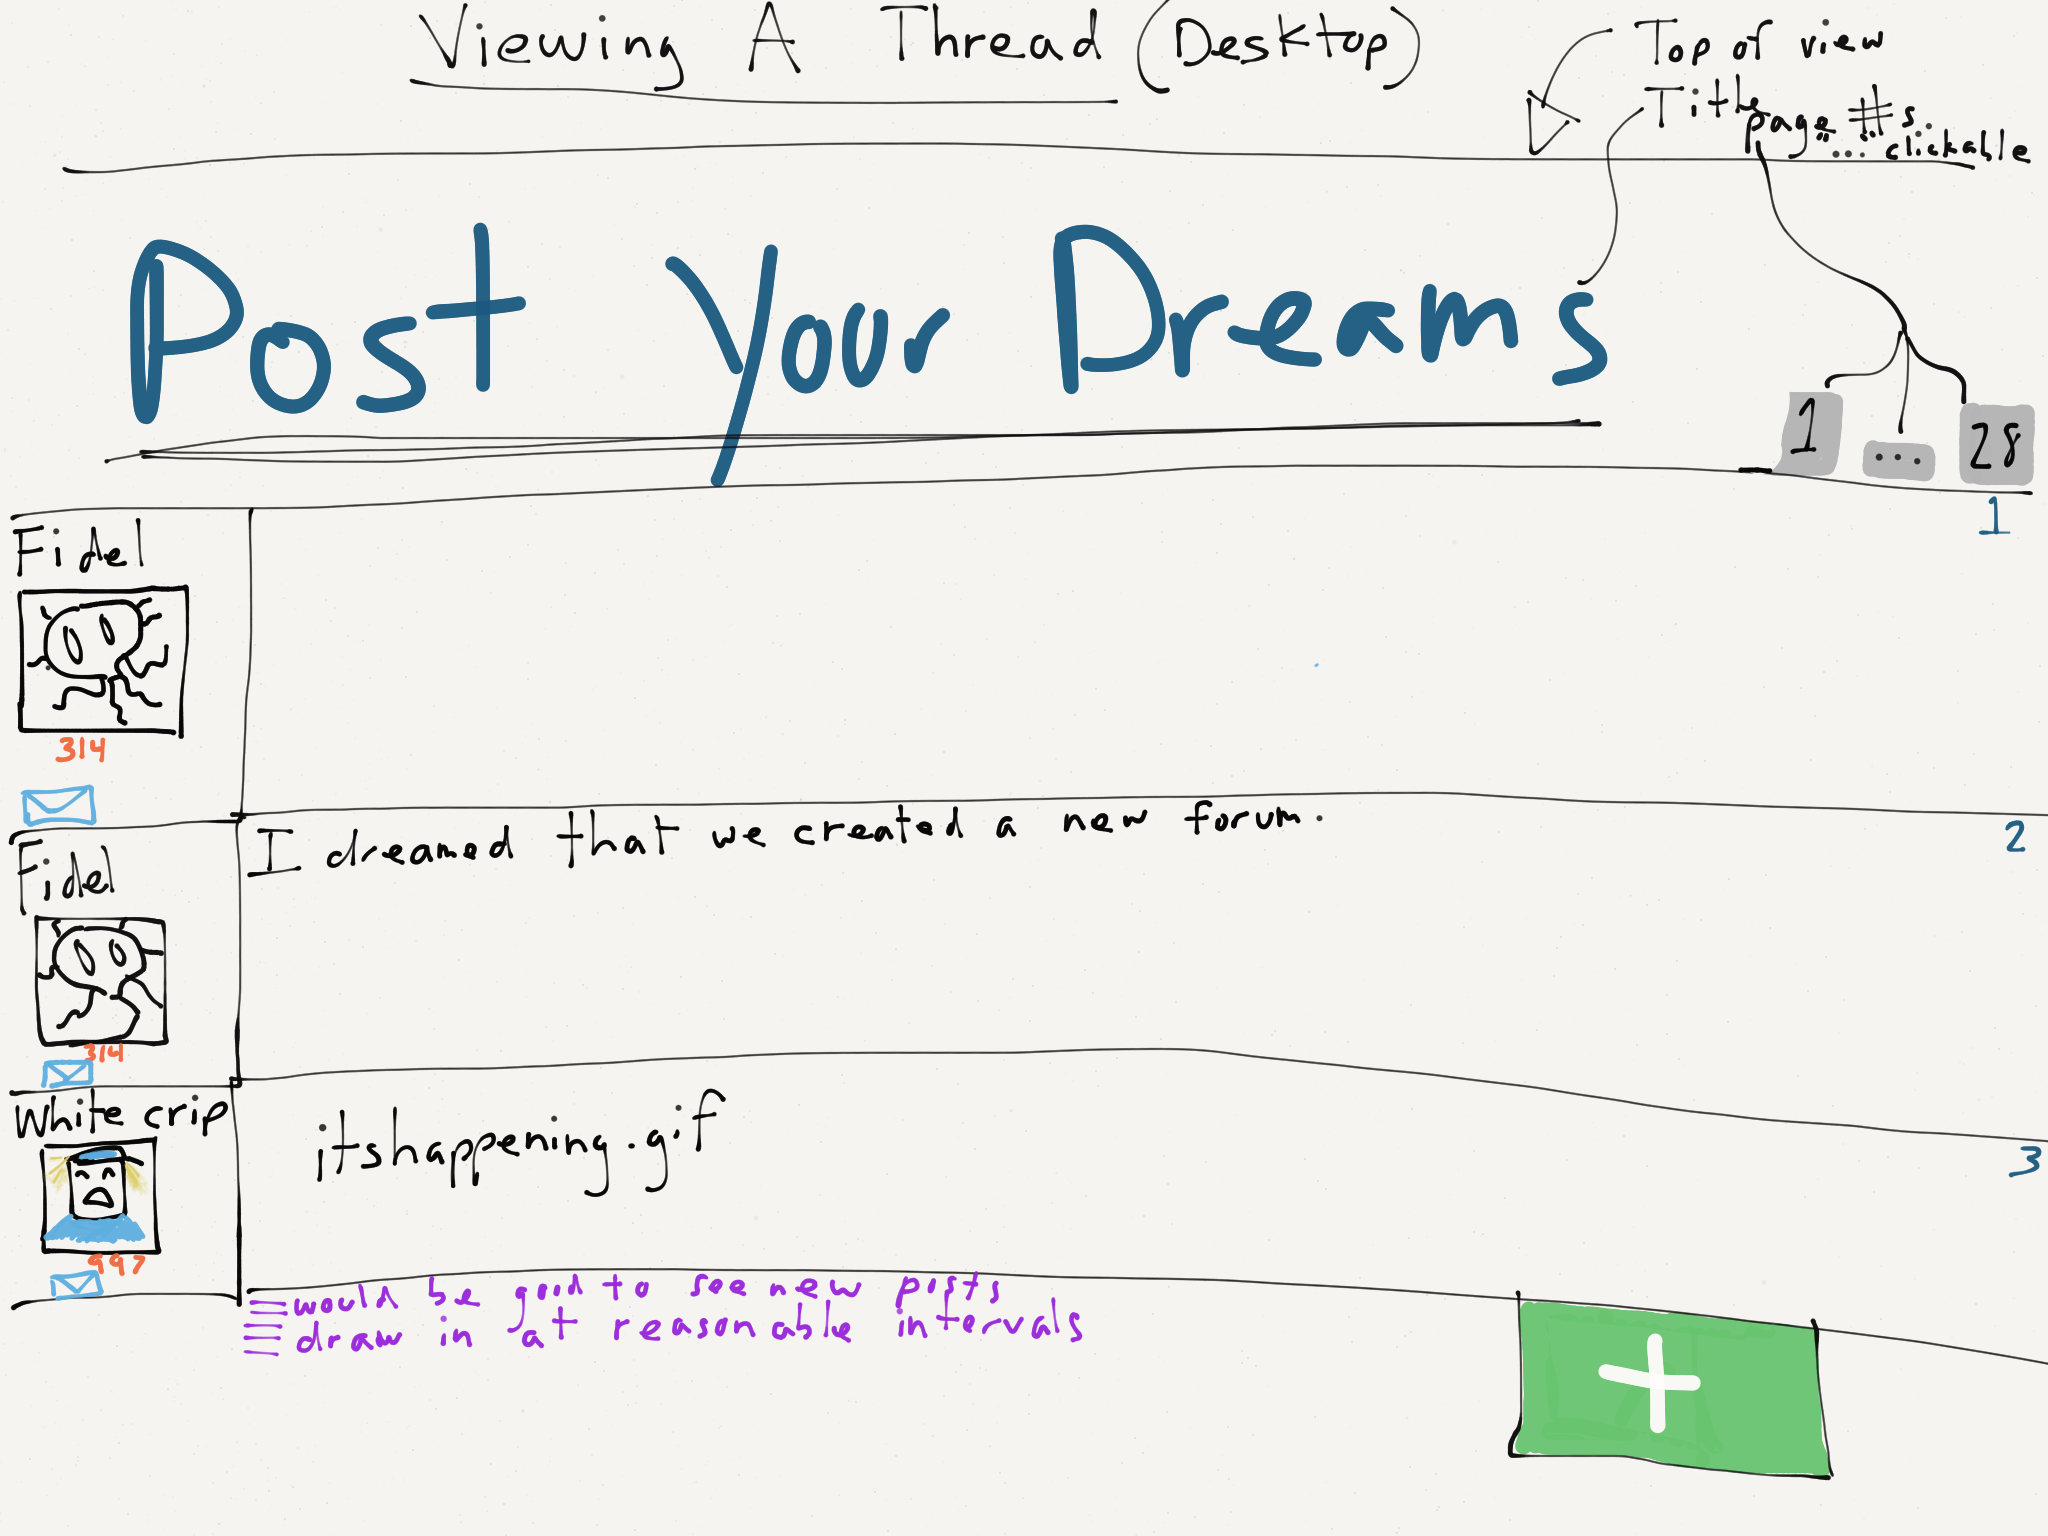 Viewing A Thread (Desktop)
Top of view
Title
page #s
"..." clickable
Post Your Dreams
1 ... 28
1
Fidel
314
2
Fidel
I dreamed that we created a new forum.
314
3
White crip
itshappening.gif
997
would be good to see new posts
draw in at reasonable intervals
+